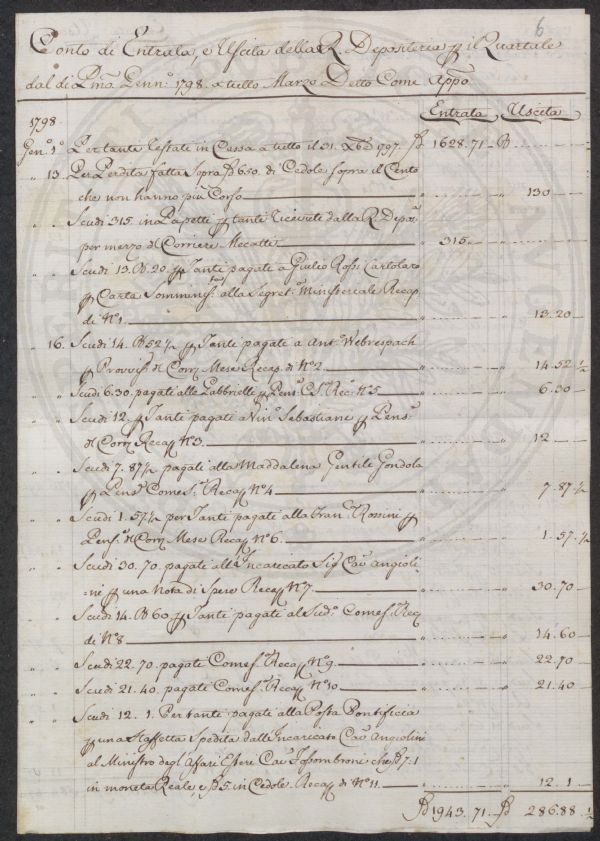 6
Conto di Entrata, e Uscita della R. Depositeria p il Quartale
dal dì Pmo Genn.o 1798. a tutto Marzo Detto Come Appo
Entrata Uscita
1798.
Gen.o 1.o Per tante restate in Cassa a tutto il 31. Xbre 1797. 1628.71
" 13. Per Perdita fatta Sopra 650. di Cedole sopra il Cento
che non hanno più Corso 130
" " Scudi 315. in Papetti p tanti ricevuti dalla R. Depos.
per mezzo di Corriere Mecatti 315
" " Scudi 13. B 20. p Tanti pagati a Giulio Rossi Cartolaro
p Carta Somminis.ta alla Segret.a Ministeriale Recap.
di N.o 1 13.20
" 16. Scudi 14. B 52 1/2 p Tanti pagati a Ant.o
p Provvis.e di Corr.e Mese Recap. di N.o 2 14.52 1/2
" " Scudi 6.30. pagati alle p Pens.e N.o 5 6.30
" " Scudi 12. p Tanti pagati a Sebastiane p Pens.e
di Corr.e Recap N.o 3 12
" " Scudi 7. 87 1/2 pagati alla Maddalena Gentili Gondola
p Pens.e Comes.a Recap N.o 4 7.87 1/2
" " Scudi 1. 57 1/2 per Tanti pagati alla Fran.a Rossini p
Pens.e di Corr.e Mese Recap N.o 6 1.57 1/2
" " Scudi 30. 70. pagati all'Incaricato Sig.r Cav. Angioli
=ni p una Nota di Spese Recap N.o 7 30.70
" " Scudi 14. B 60 p Tanti pagati al Sud.o Comes.a Rec.
di N.o 8 14.60
" " Scudi 22. 70. pagati Comes.a Recap N.o 9 22.70
" " Scudi 21. 40. pagati Comes.a Recap N.o 10 21.40
" " Scudi 12. 1. Per tanti pagati alla Posta Pontificia
p una Staffetta Spedita dall'Incaricato Cav. Angiolini
al Ministro degl'Affari Esteri Cav. Fossombroni che 7.1
in moneta Reale, e 5. in Cedole Recap di N.o 11 12.1
1943.71 286.88 1/2